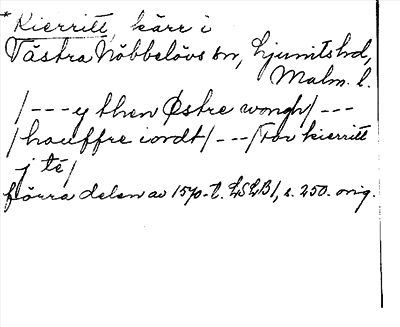 *Kierritt, kärr i
Västra Nöbbelövs sn, Ljunits hd,
Malm. l.
/---y then Østre wongh/---
/hauffre iordt/---/Tor kierritt
j té/
förra delen av 1570-t. LSLB1, s. 250. orig.